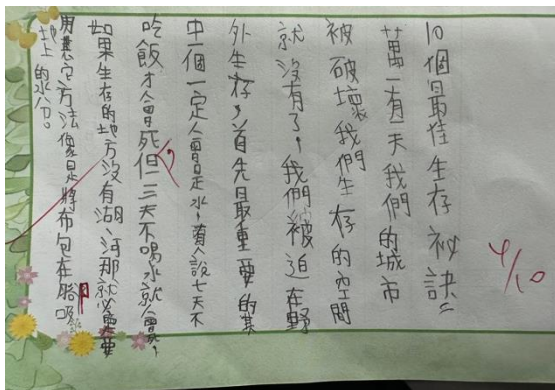 10個最佳生存祕訣:
萬一有一天我們的城市
被破壞我們生存的空間
就沒有了,我們被迫在野
外生存,首先最重要的其
中一個一定會是水,有人說七天不
吃飯才會死但三天不喝水就會,
如果生存的地方沒有湖、河那就必需要
用其它方法像是將布包在腳
地上的水分。
4/10